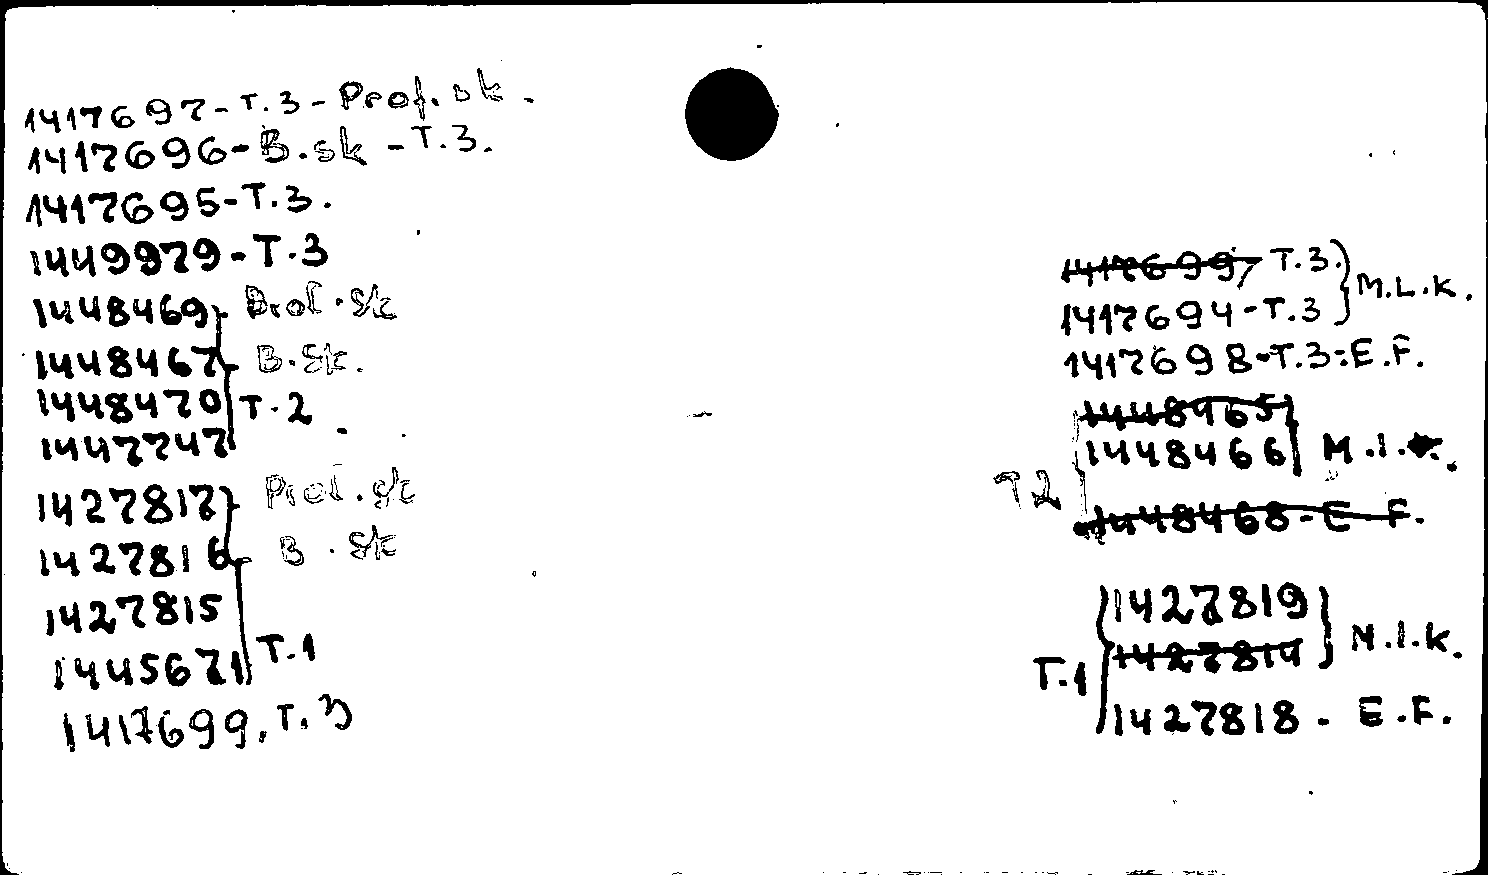 1417697-T.3-Prof.sk.
1417696-B.sk-T.3.
1417695-T.3.
1449979-T.3
1448469 Prof.sk
1448467 B.sk.
1448470 T.2
1447747
1427817 Prof.sk
1427816 B.sk
1427815
1445671 T.1
1417699. T.3
1417699, T.3. M.L.K.
1417694-T.3
1417698-T.3-E.F.
1448465
1448466 M.l.k.
T2
1448468-E.F.
1427819
1427814 M.l.k.
T.1
1427818- E.F.